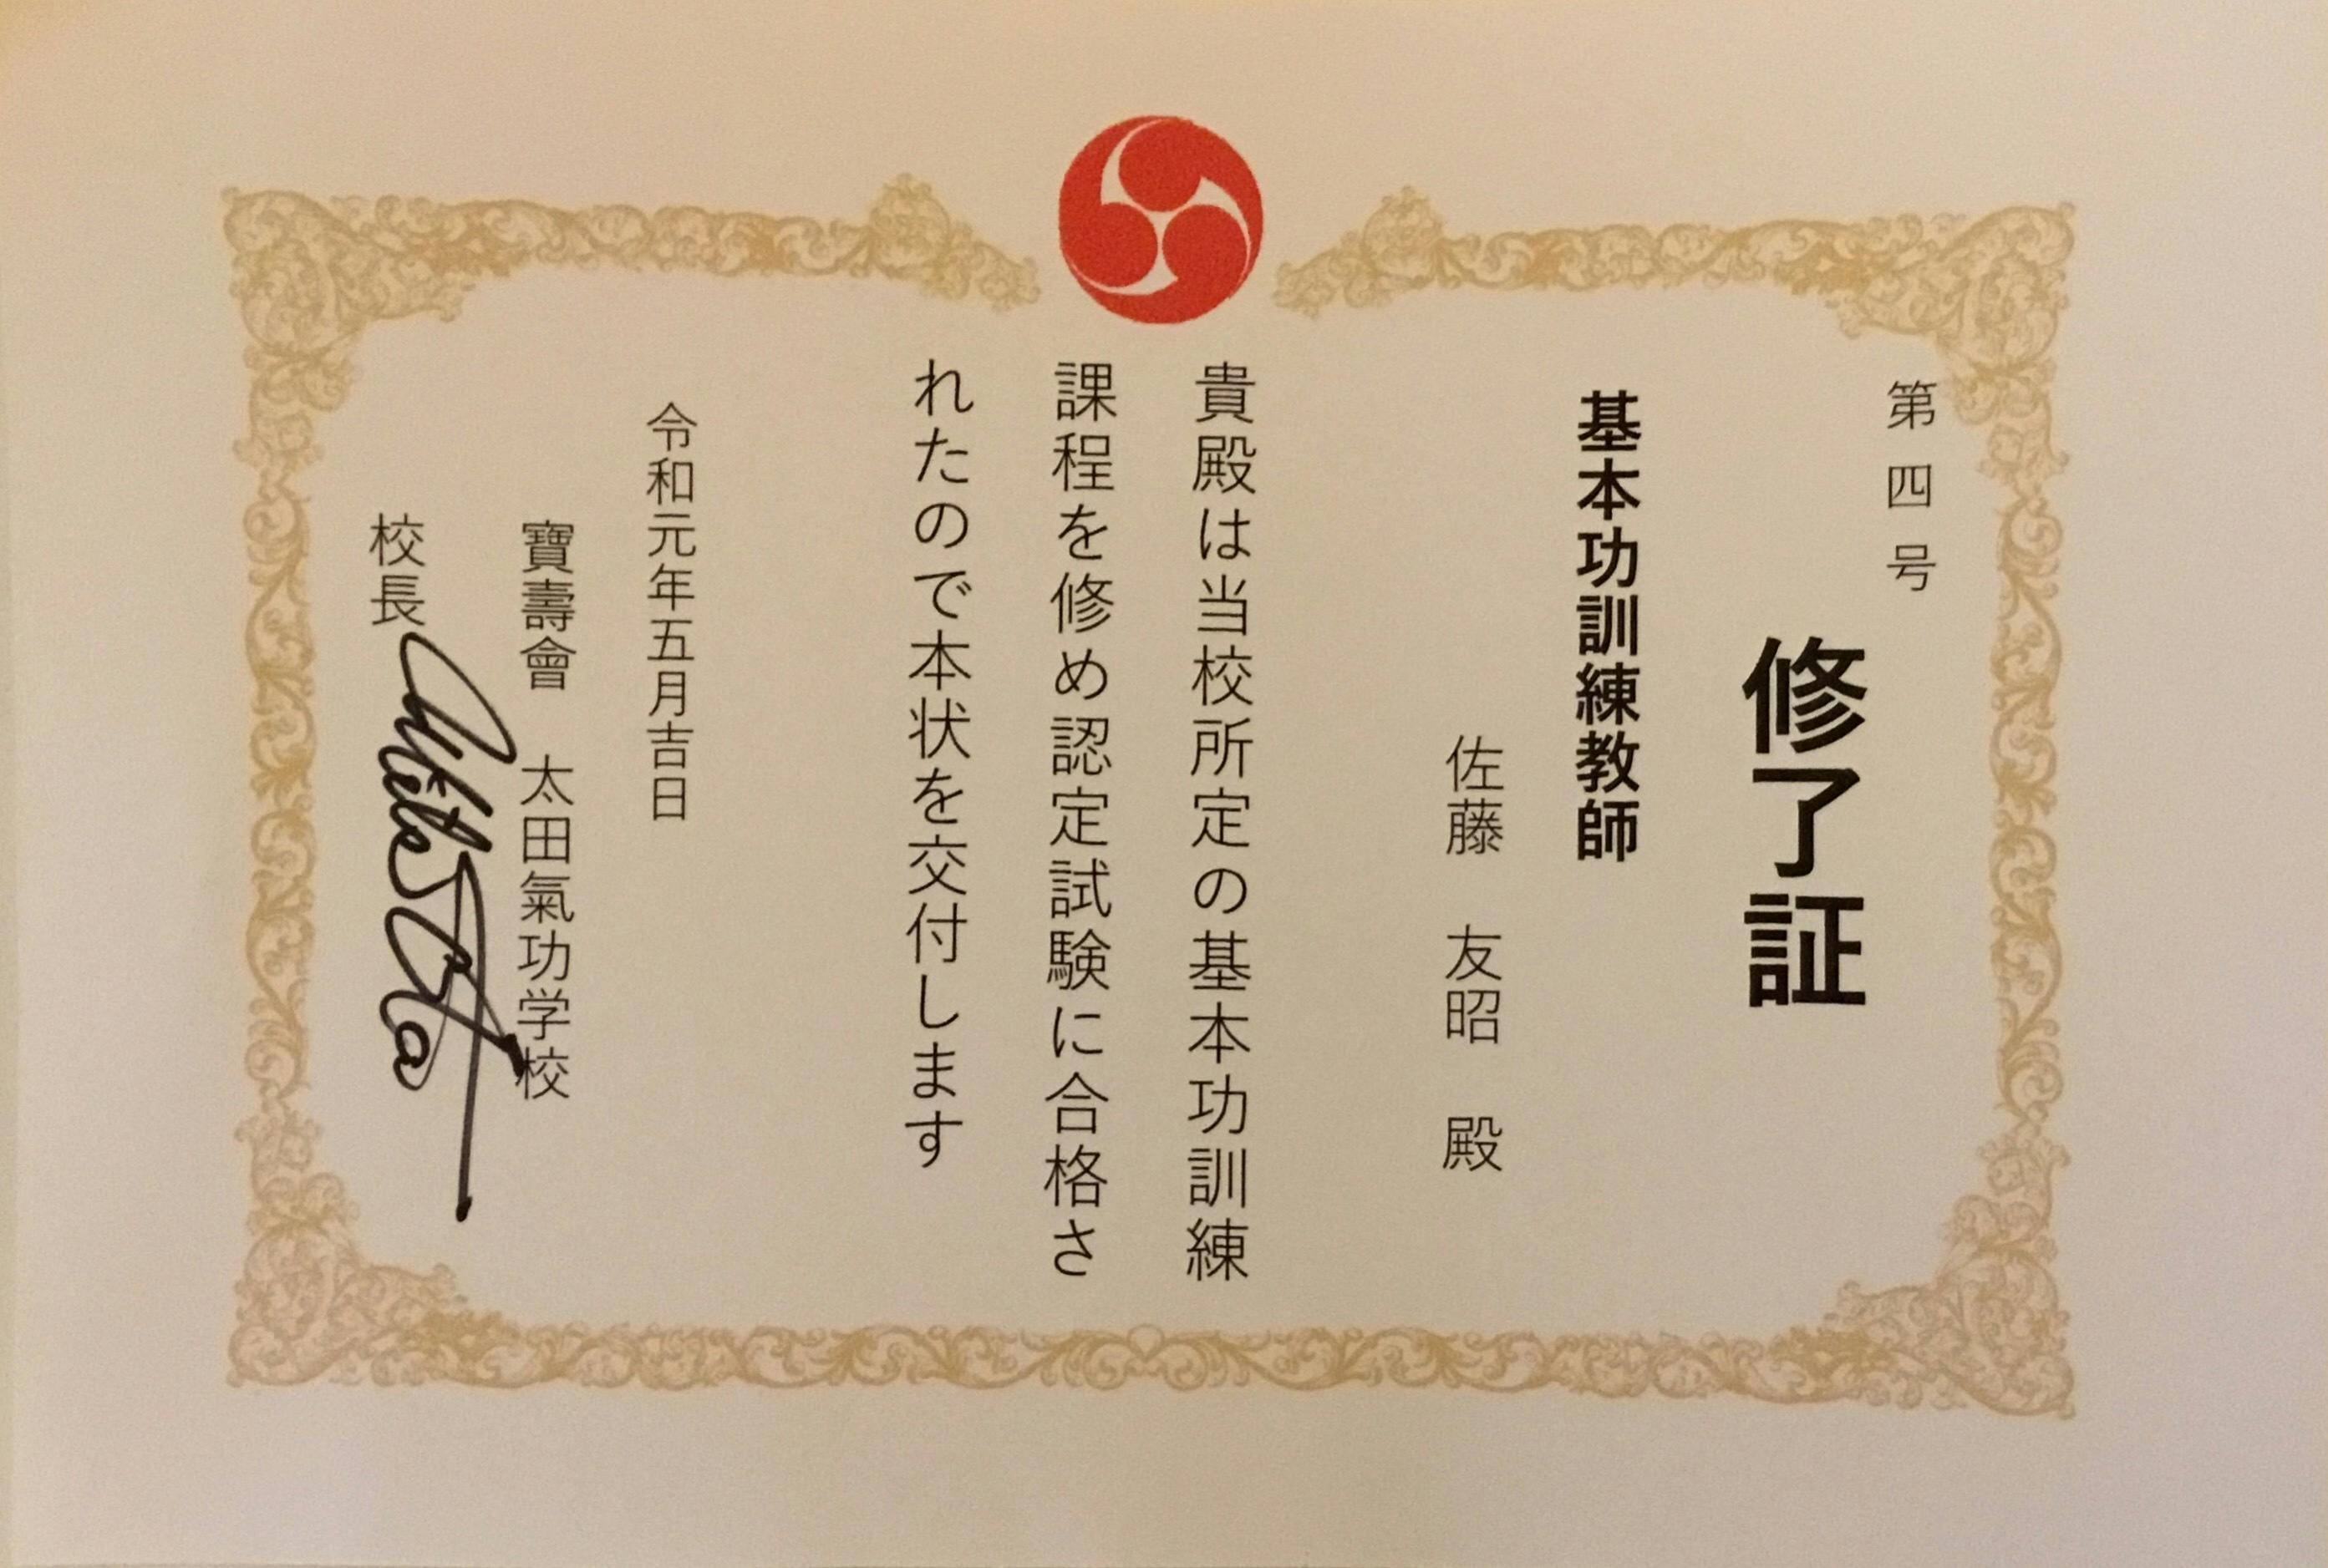 第四号
修了証
基本功訓練教師
佐藤 友昭 殿
貴殿は当校所定の基本功訓練
課程を修め認定試験に合格さ
れたので本状を交付します
令和元年五月吉日
寶壽會 太田氣功学校
校長